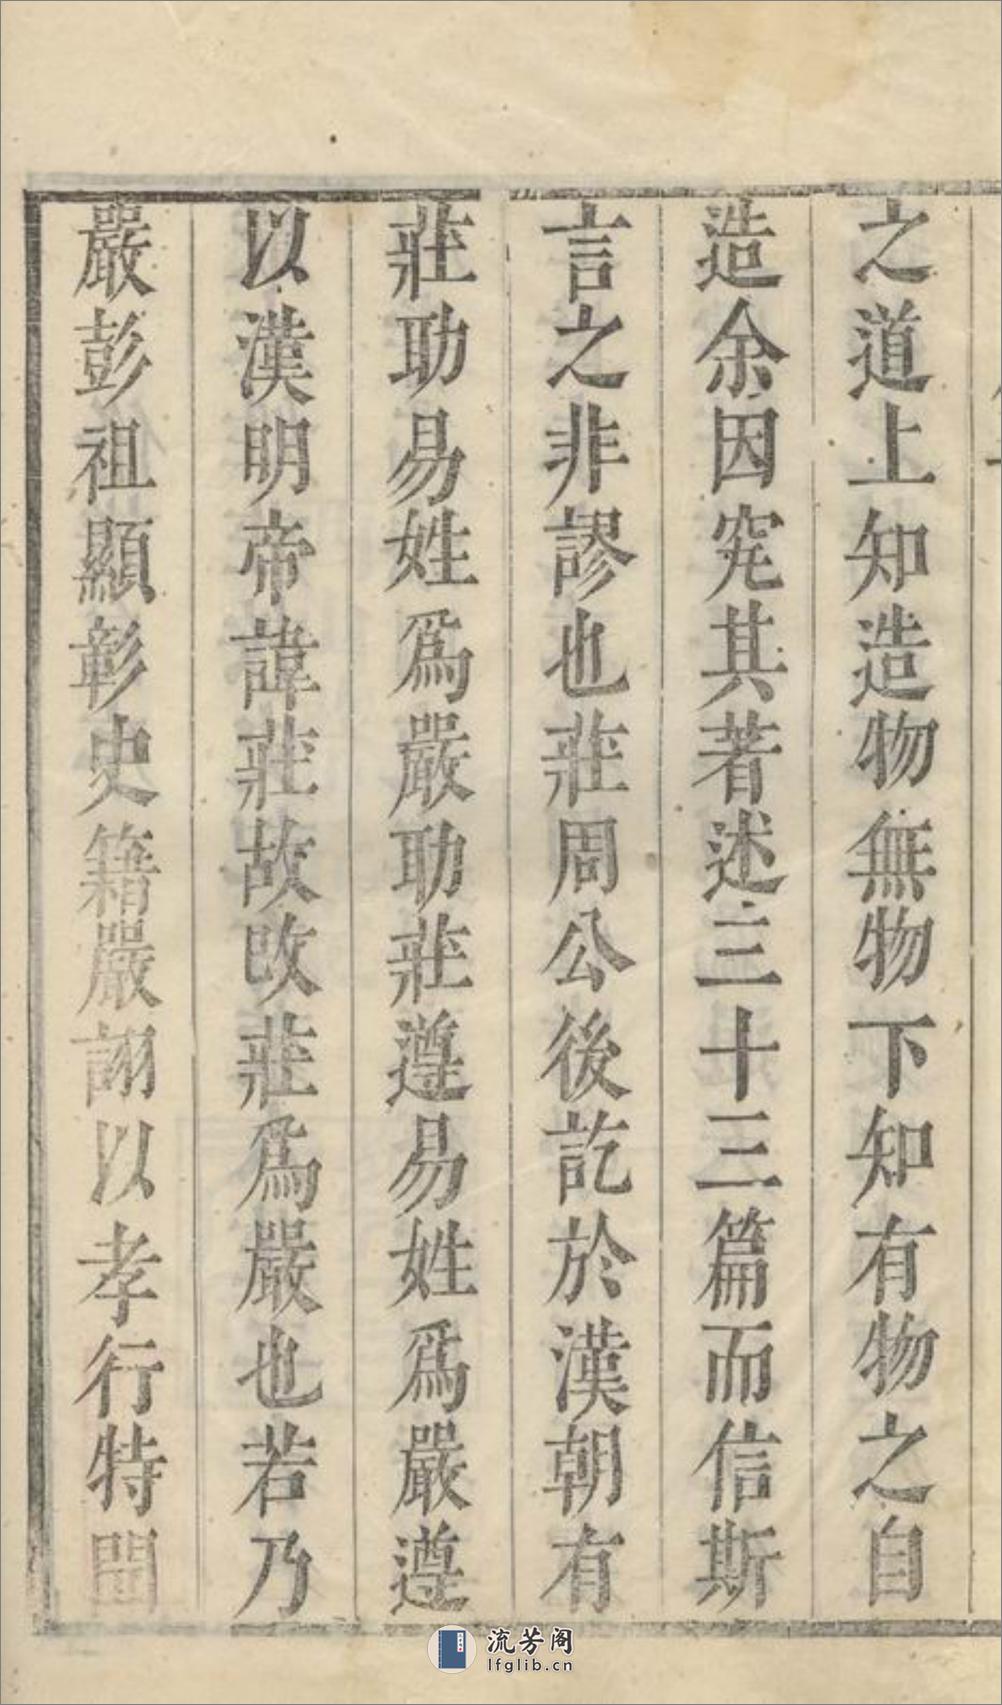 之道上知造物無物下知有物之自
造余因究其著述三十三篇而信斯
言之非謬也莊周公後訖於漢朝有
莊助易姓爲嚴助莊遵易姓爲嚴遵
以漢明帝諱莊故改莊爲嚴也若乃
嚴彭祖顯彰史籍嚴詡以孝行特聞
流芳阁
lfglib.cn